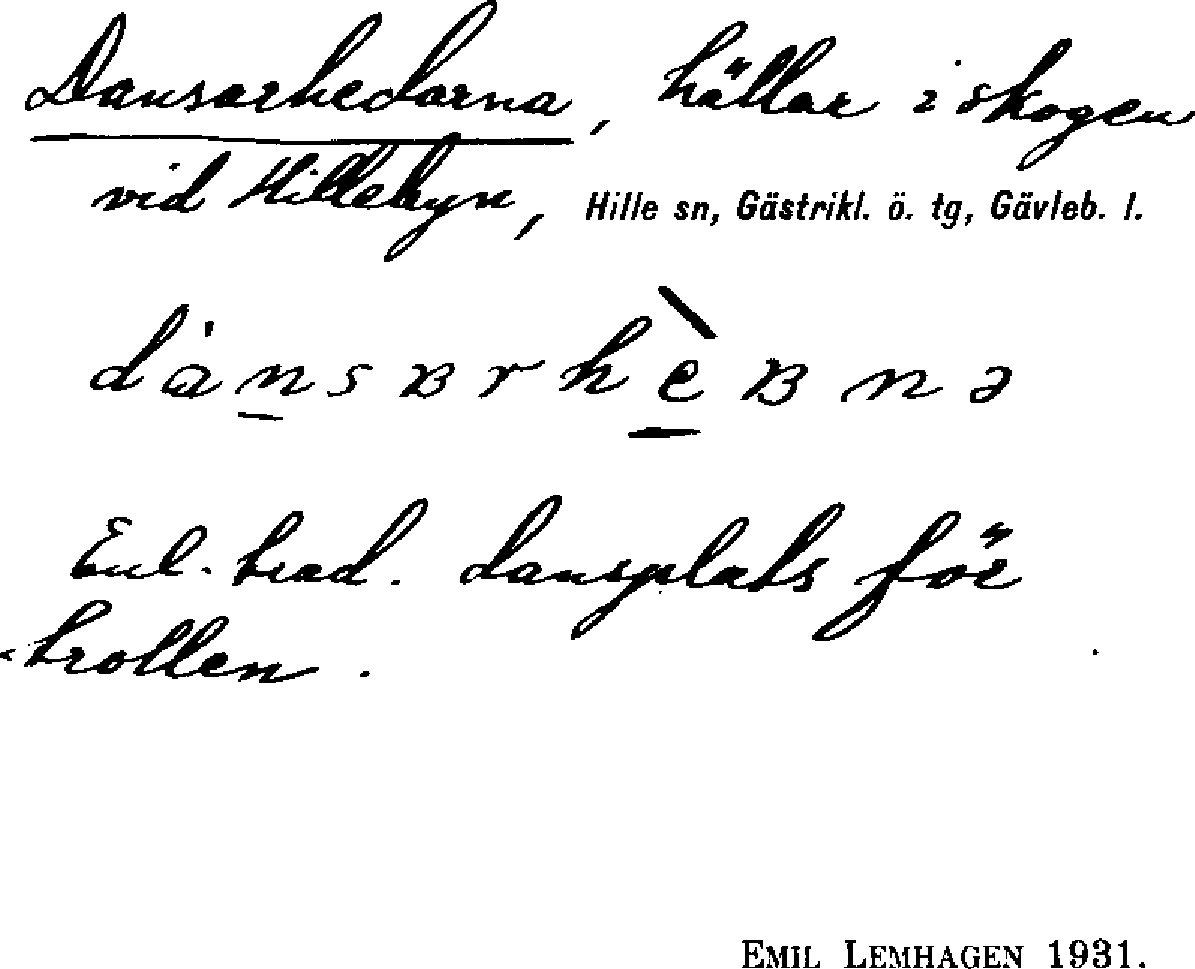 Dansarhedarna, hällar i skogen
vid Hillebyn, Hille sn, Gästrikl. ö. tg, Gävleb. l.
dànsʙrhèʙnə
Enl. trad. dansplats för
trollen.
EMIL LEMHAGEN 1931.